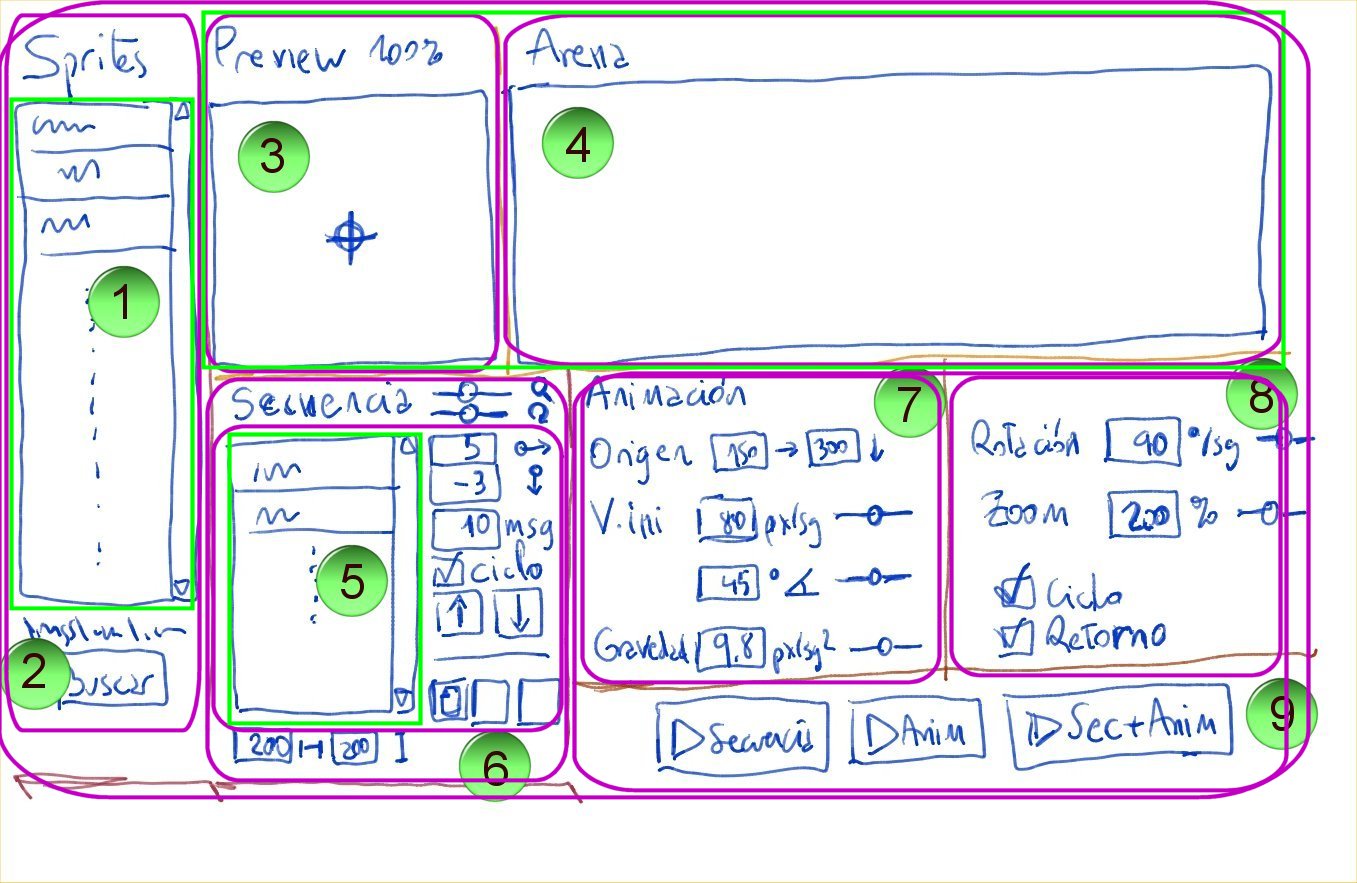 Sprites
1
2
Buscar
Preview 100%
3
Arena
4
Secuencia
5
-3
10 msg
Ciclo
5
200 200
6
Animación
7
Origen 150 → 300 ↓
V.ini 80 px/sg
45 °
Gravedad 9.8 px/sg²
8
Rotación 90 °/sg
Zoom 200 %
Ciclo
Retorno
Secuencia Anim Sec+Anim
9